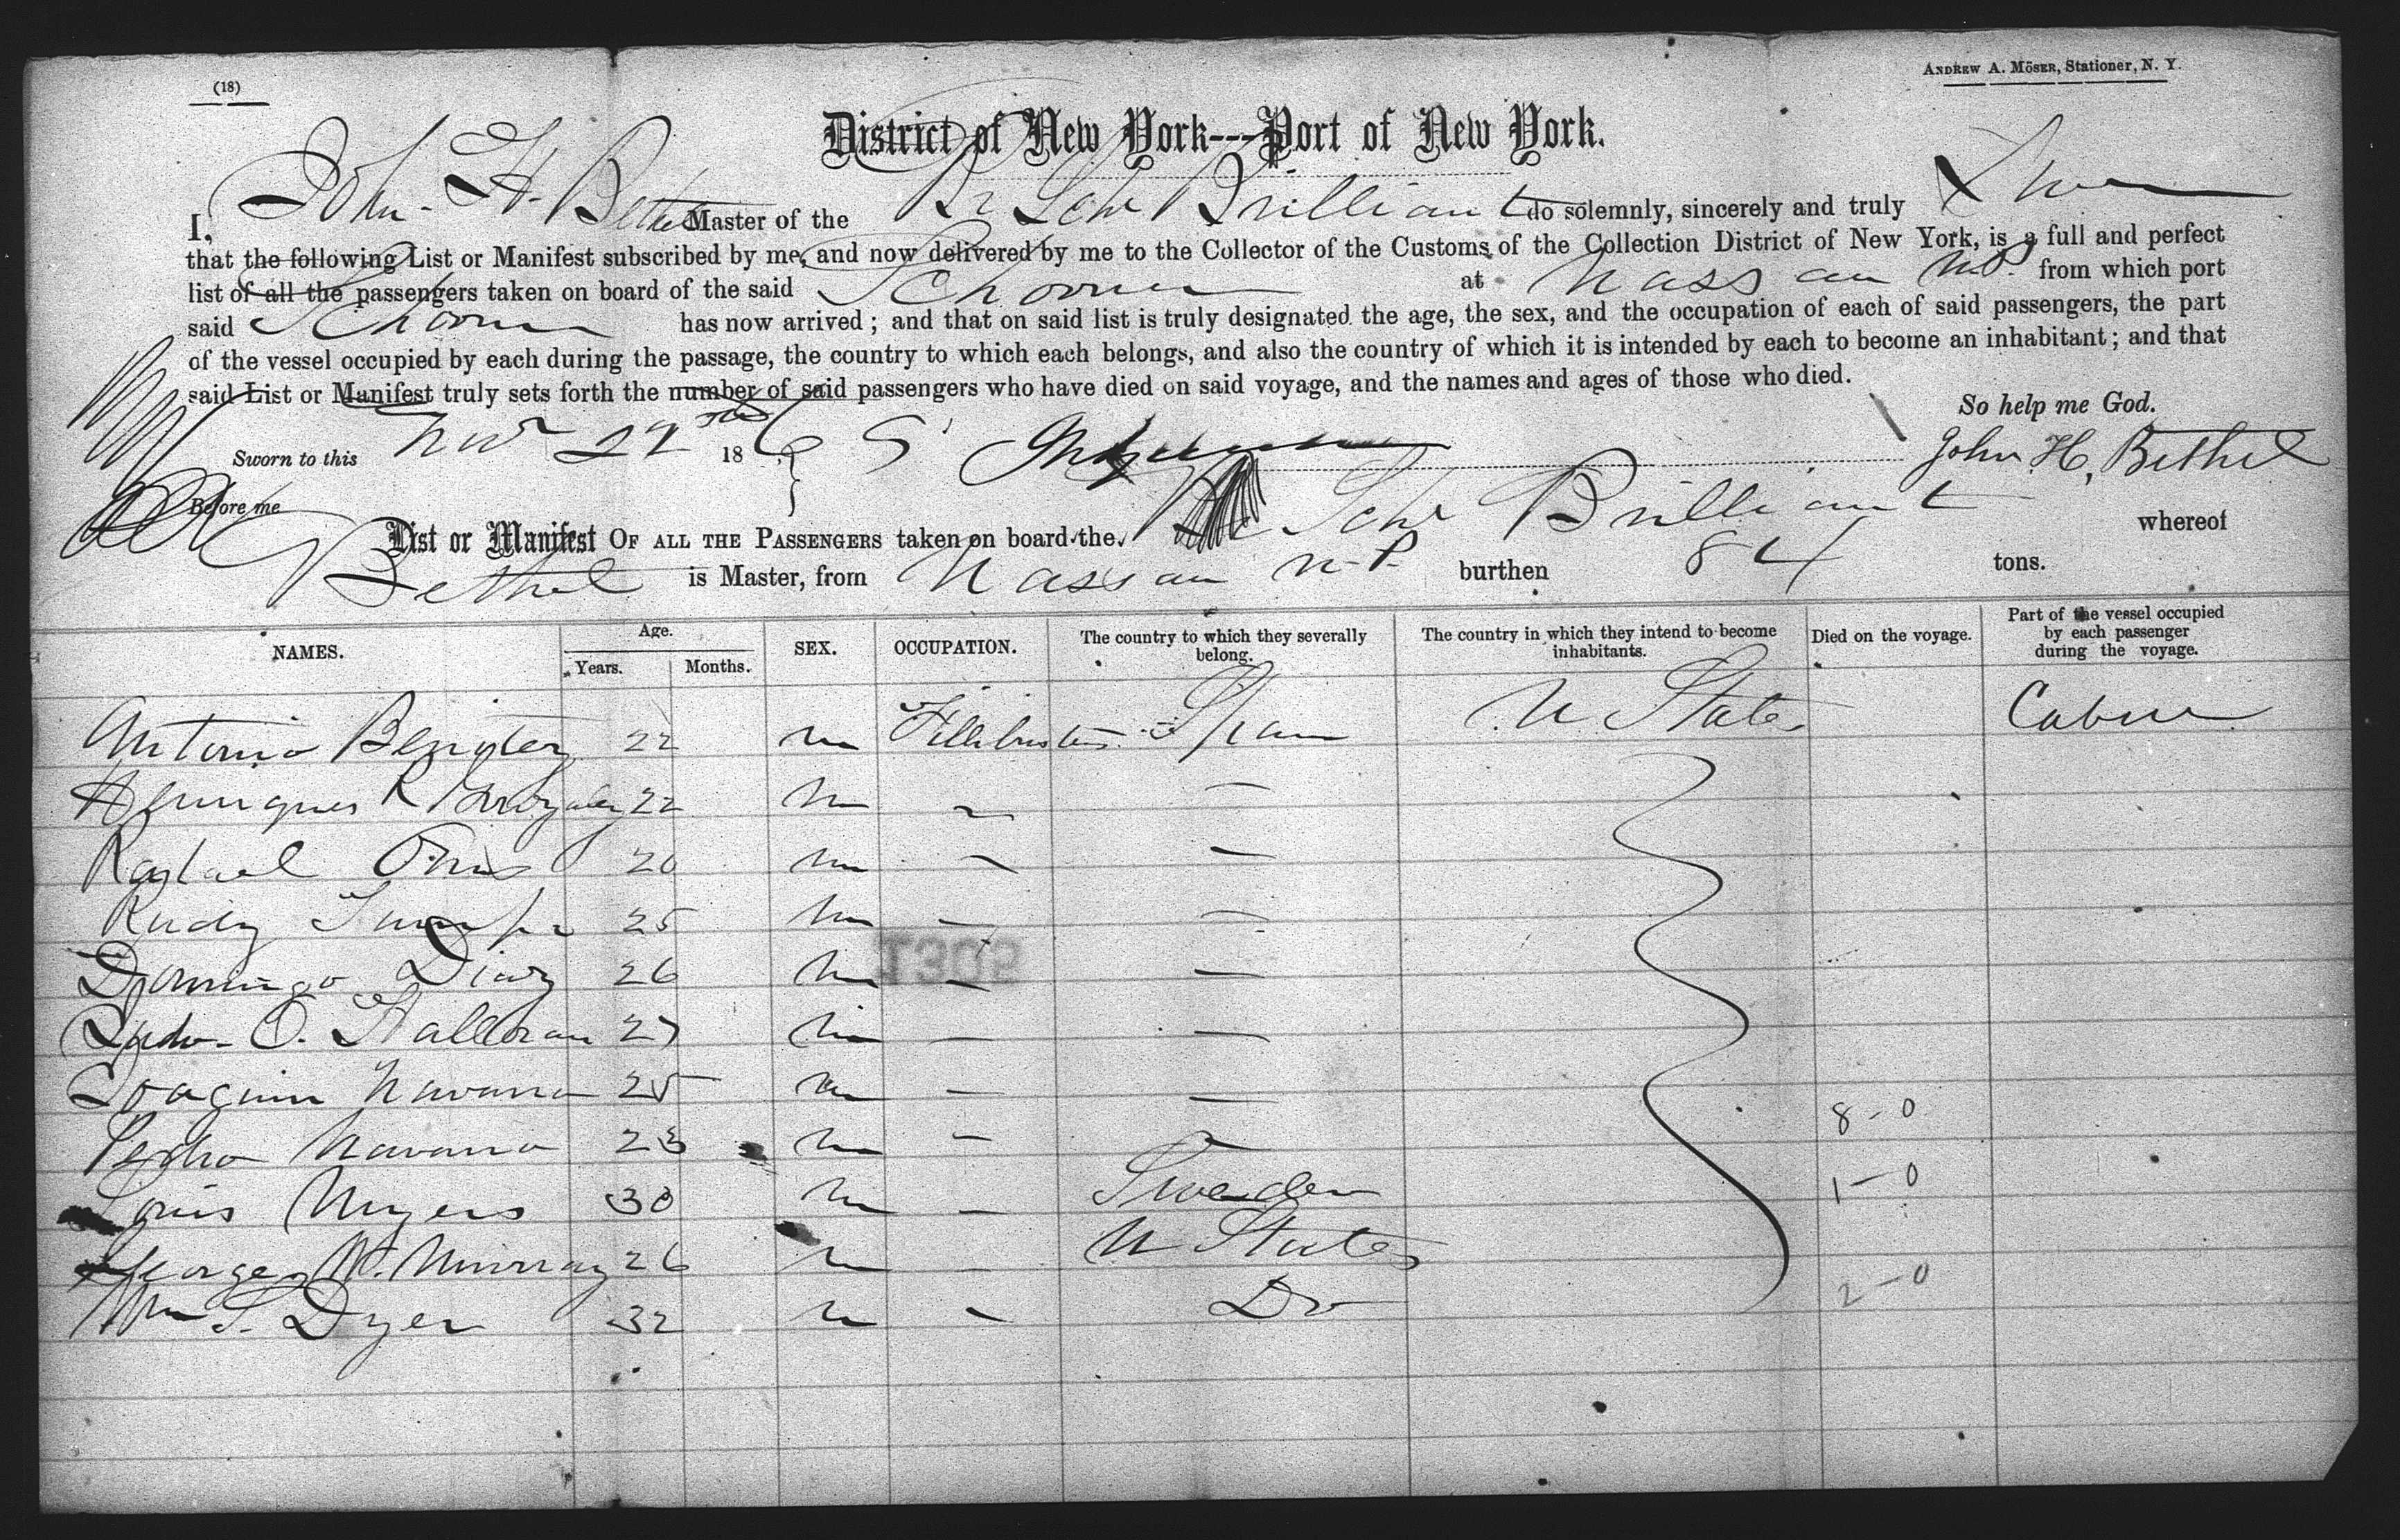 (18)
ANDREW A. MÖSER, Stationer, N. Y.
District of New York---Port of New York.
I, John H. Bethel Master of the Br Schr Brilliant do solemnly, sincerely and truly Swear
that the following List or Manifest subscribed by me, and now delivered by me to the Collector of the Customs of the Collection District of New York, is a full and perfect
list of all the passengers taken on board of the said Schooner at Nassau N.P. from which port
said Schooner has now arrived; and that on said list is truly designated the age, the sex, and the occupation of each of said passengers, the part
of the vessel occupied by each during the passage, the country to which each belongs, and also the country of which it is intended by each to become an inhabitant; and that
said List or Manifest truly sets forth the number of said passengers who have died on said voyage, and the names and ages of those who died.
So help me God.
Sworn to this Nov 22 18 John H, Bethel
Before me
List or Manifest OF ALL THE PASSENGERS taken on board the Schr Brilliant whereof
Bethel is Master, from Nassau N.P. burthen 84 tons.
NAMES. Age. Years. Months. SEX. OCCUPATION. The country to which they severally belong. The country in which they intend to become inhabitants. Died on the voyage. Part of the vessel occupied by each passenger during the voyage.
Antonio 22 m Fillibusters Spain U States Cabin
R 22 m — —
Raphael 20 m — —
Rudy 25 m — —
Domingo Diaz 26 m — —
O. Halloran 27 m — —
Joaquin Navarro 25 m — —
Pedro Navarro 23 m — — 8-0
Louis Myers 30 m — Sweden 1-0
George W. Murray 26 m — U States
Wm S. Dyer 32 m — Do 2-0